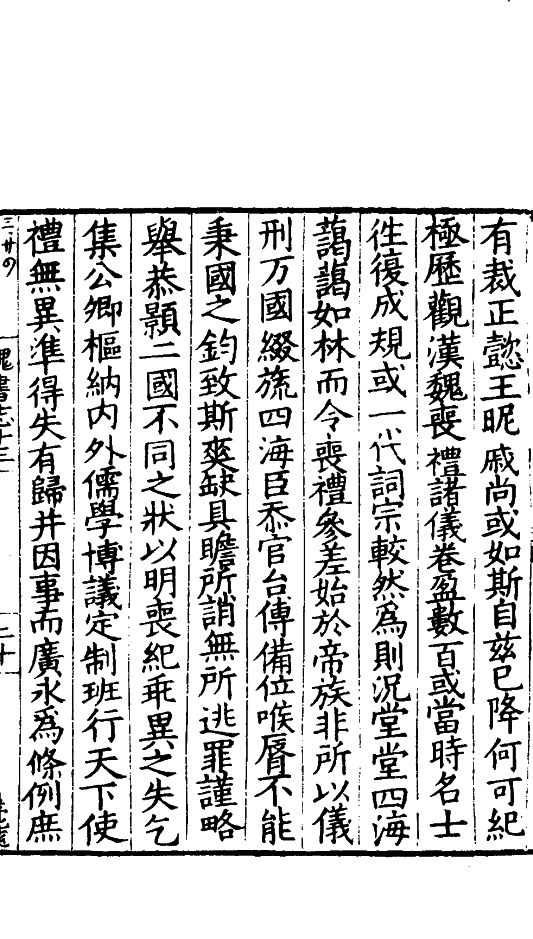 有裁正懿王昵戚尚或如斯自茲已降何可紀
極歷觀漢魏喪禮諸儀卷盈數百或當時名士
往復成規或一代詞宗較然爲則況堂堂四海
藹藹如林而令喪禮參差始於帝族非所以儀
刑万國綴旒四海臣忝官台傅備位喉脣不能
秉國之鈞致斯爽缺具瞻所誚無所逃罪謹略
舉恭顥二國不同之狀以明喪紀乖異之失乞
集公卿樞納內外儒學博議定制班行天下使
禮無異準得失有歸并因事而廣永爲條例庶
魏書志十三
二十